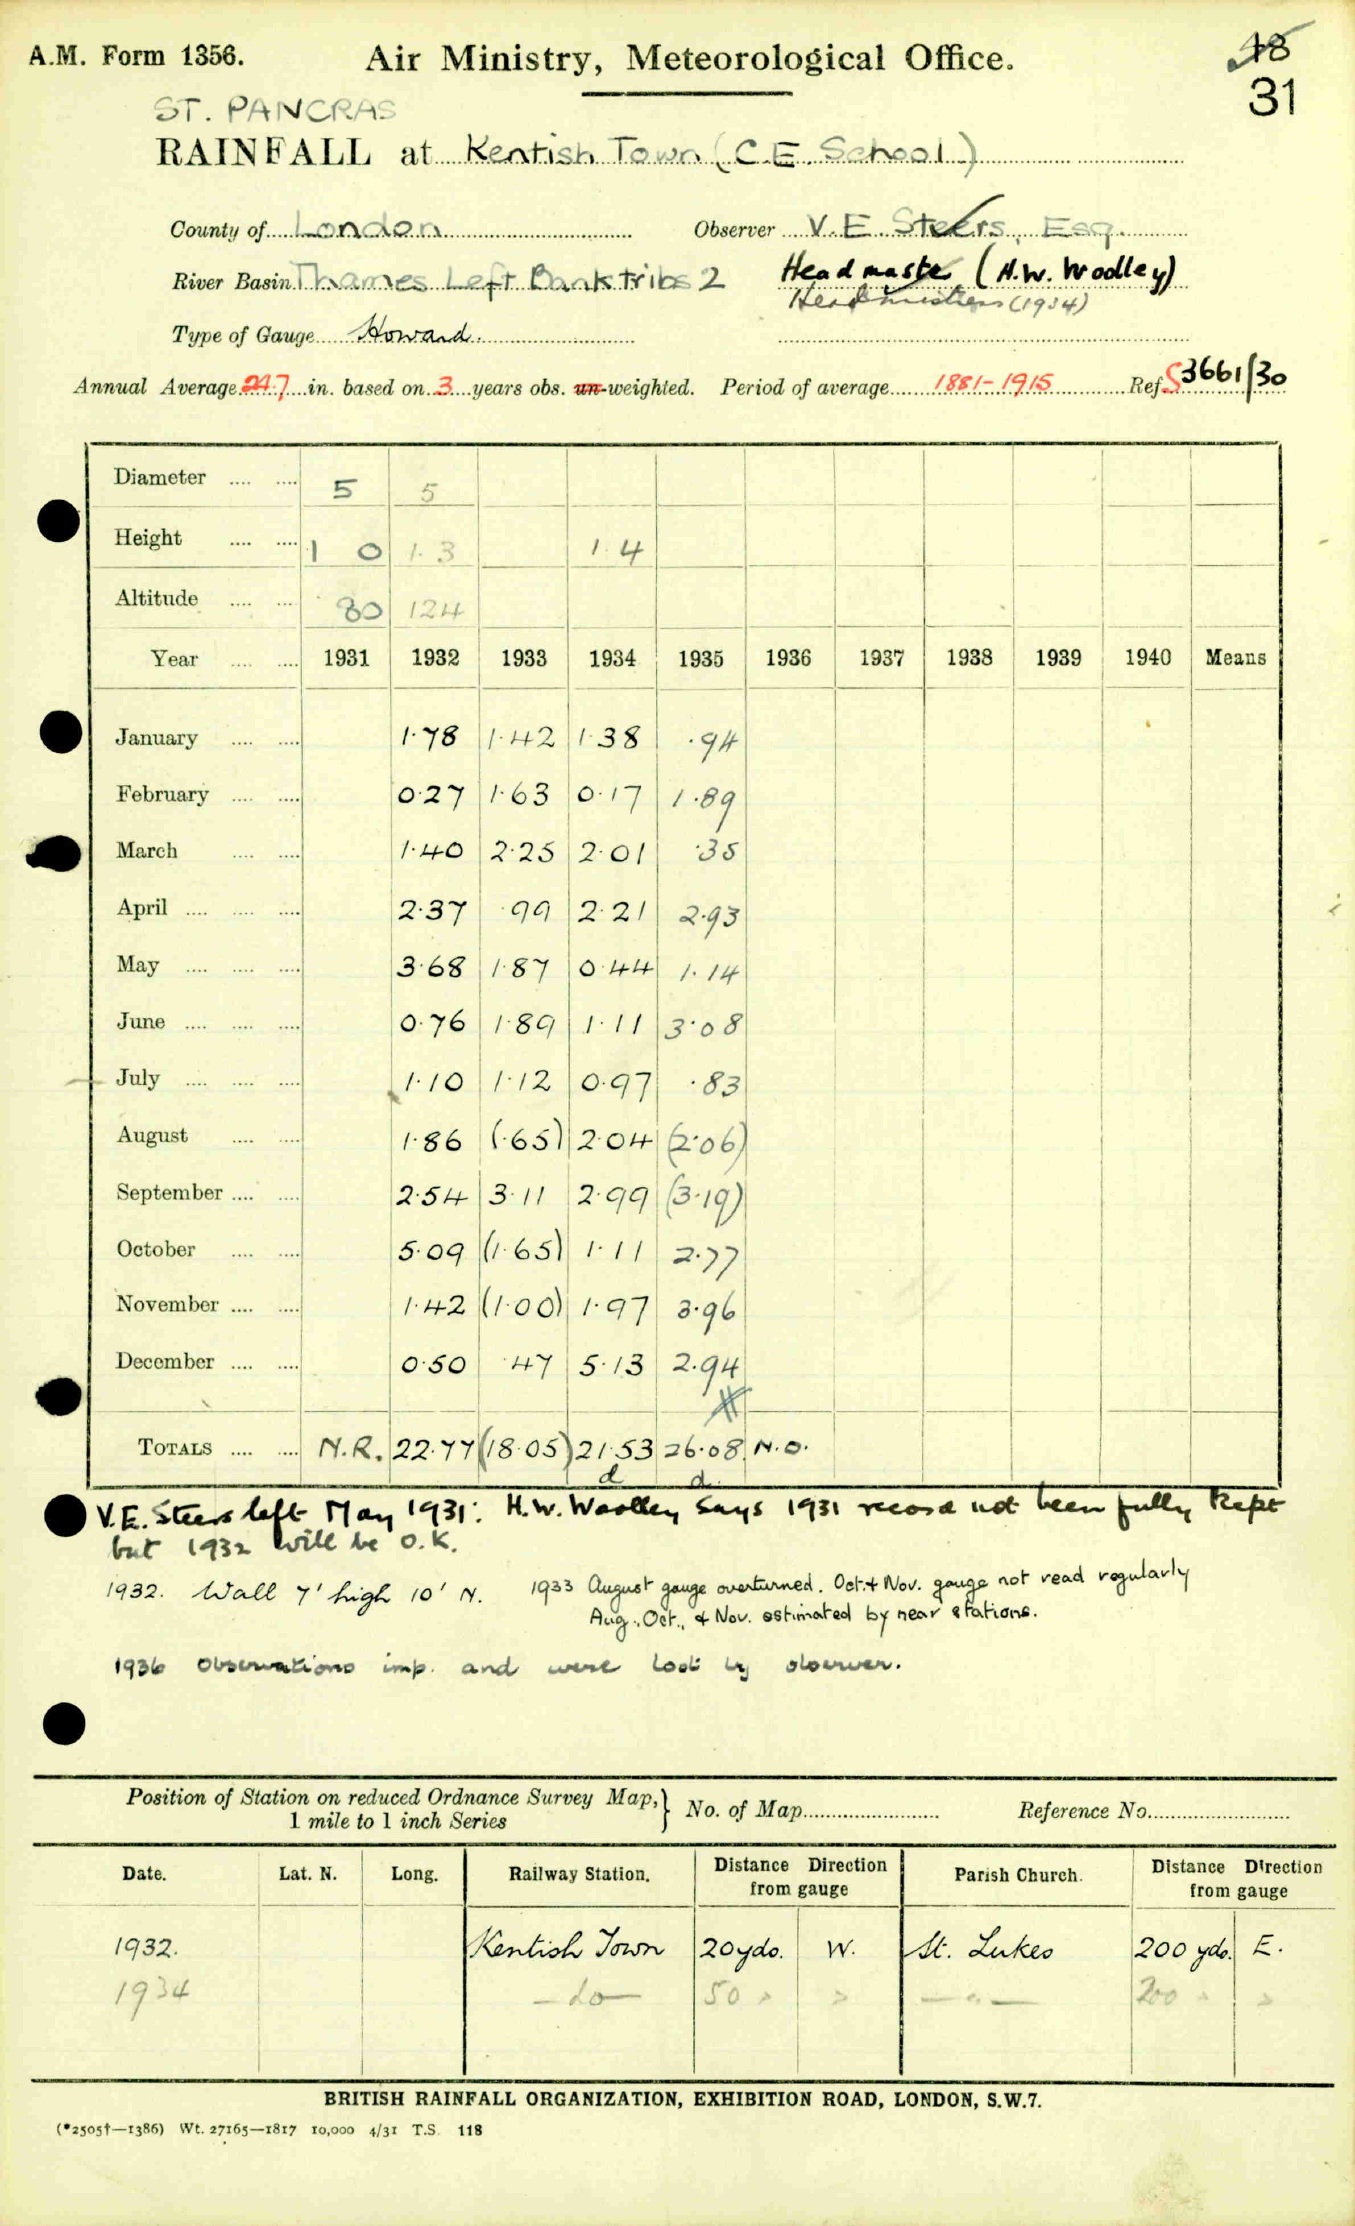 A.M. Form 1356. Air Ministry, Meteorological Office. 48
31
ST. PANCRAS
RAINFALL at Kentish Town (C.E. School)
County of London Observer V.E. Steers, Esq.
River Basin Thames Left Bank tribs 2 Headmaster (H.W. Woolley)
Headmistress (1934)
Type of Gauge Howard.
Annual Average 24.7 in. based on 3 years obs. un-weighted. Period of average 1881-1915 Ref. S3661/30
Diameter .... .... 5 5
Height .... .... 1 0 1.3 1.4
Altitude .... .... 80 124
Year .... .... 1931 1932 1933 1934 1935 1936 1937 1938 1939 1940 Means
January .... .... 1.78 1.42 1.38 .94
February .... .... 0.27 1.63 0.17 1.89
March .... .... 1.40 2.25 2.01 .35
April .... .... .... 2.37 .99 2.21 2.93
May .... .... .... 3.68 1.87 0.44 1.14
June .... .... .... 0.76 1.89 1.11 3.08
July .... .... .... 1.10 1.12 0.97 .83
August .... .... 1.86 (.65) 2.04 (2.06)
September .... .... 2.54 3.11 2.99 (3.19)
October .... .... 5.09 (1.65) 1.11 2.77
November .... .... 1.42 (1.00) 1.97 3.96
December .... .... 0.50 .47 5.13 2.94
TOTALS .... .... N.R. 22.77 (18.05) 21.53 26.08 N.O.
d d
V.E. Steers left May 1931: H.W. Woolley says 1931 record not been fully kept
but 1932 will be O.K.
1932. Wall 7' high 10' N. 1933 August gauge overturned. Oct. & Nov. gauge not read regularly
Aug., Oct., & Nov. estimated by near stations.
1936 Observations imp. and were lost by observer.
Position of Station on reduced Ordnance Survey Map, } No. of Map Reference No.
1 mile to 1 inch Series
Date. Lat. N. Long. Railway Station. Distance Direction Parish Church. Distance Direction
from gauge from gauge
1932. Kentish Town 20 yds. W. St. Lukes 200 yds. E.
1934 — do — 50 " " — " — 200 " "
BRITISH RAINFALL ORGANIZATION, EXHIBITION ROAD, LONDON, S.W.7.
(*2505†—1386) Wt. 27165—1817 10,000 4/31 T.S. 118